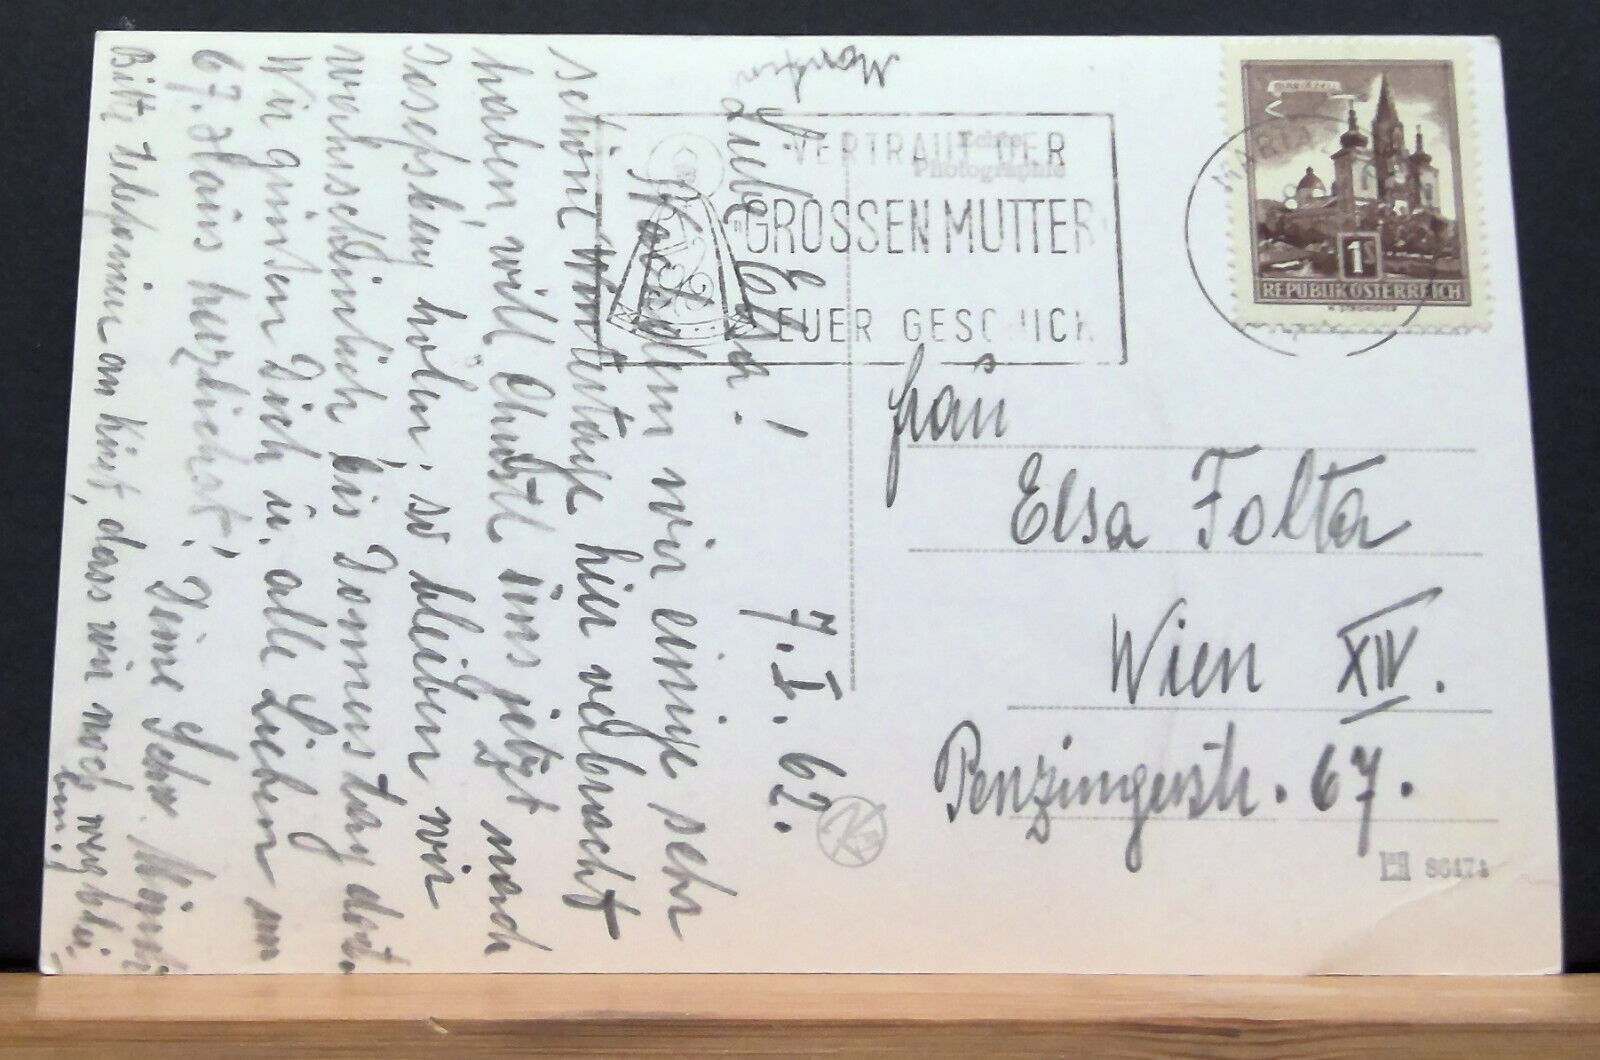 Montag
Liebe Elsa!
7.I.62.
Nachdem wir einige sehr
schöne Wintertage hier verbracht
haben, will Christl uns jetzt nach
Josefsberg holen; so bleiben wir
wahrscheinlich bis Donnerstag dort.
Wir grüßen Dich u. alle Lieben im
67. Haus herzlichst! Deine Schw. Mimi
Bitte telefonier an, dass wir noch wegblei-
ben!
VERTRAUT DER
GROSSEN MUTTER
EUER GESCHICK
Echte
Photographie
MARIAZELL
MARIAZELL
1S
REPUBLIK ÖSTERREICH
Frau
Elsa Folta
Wien XIV.
Penzingerstr. 67.
86474